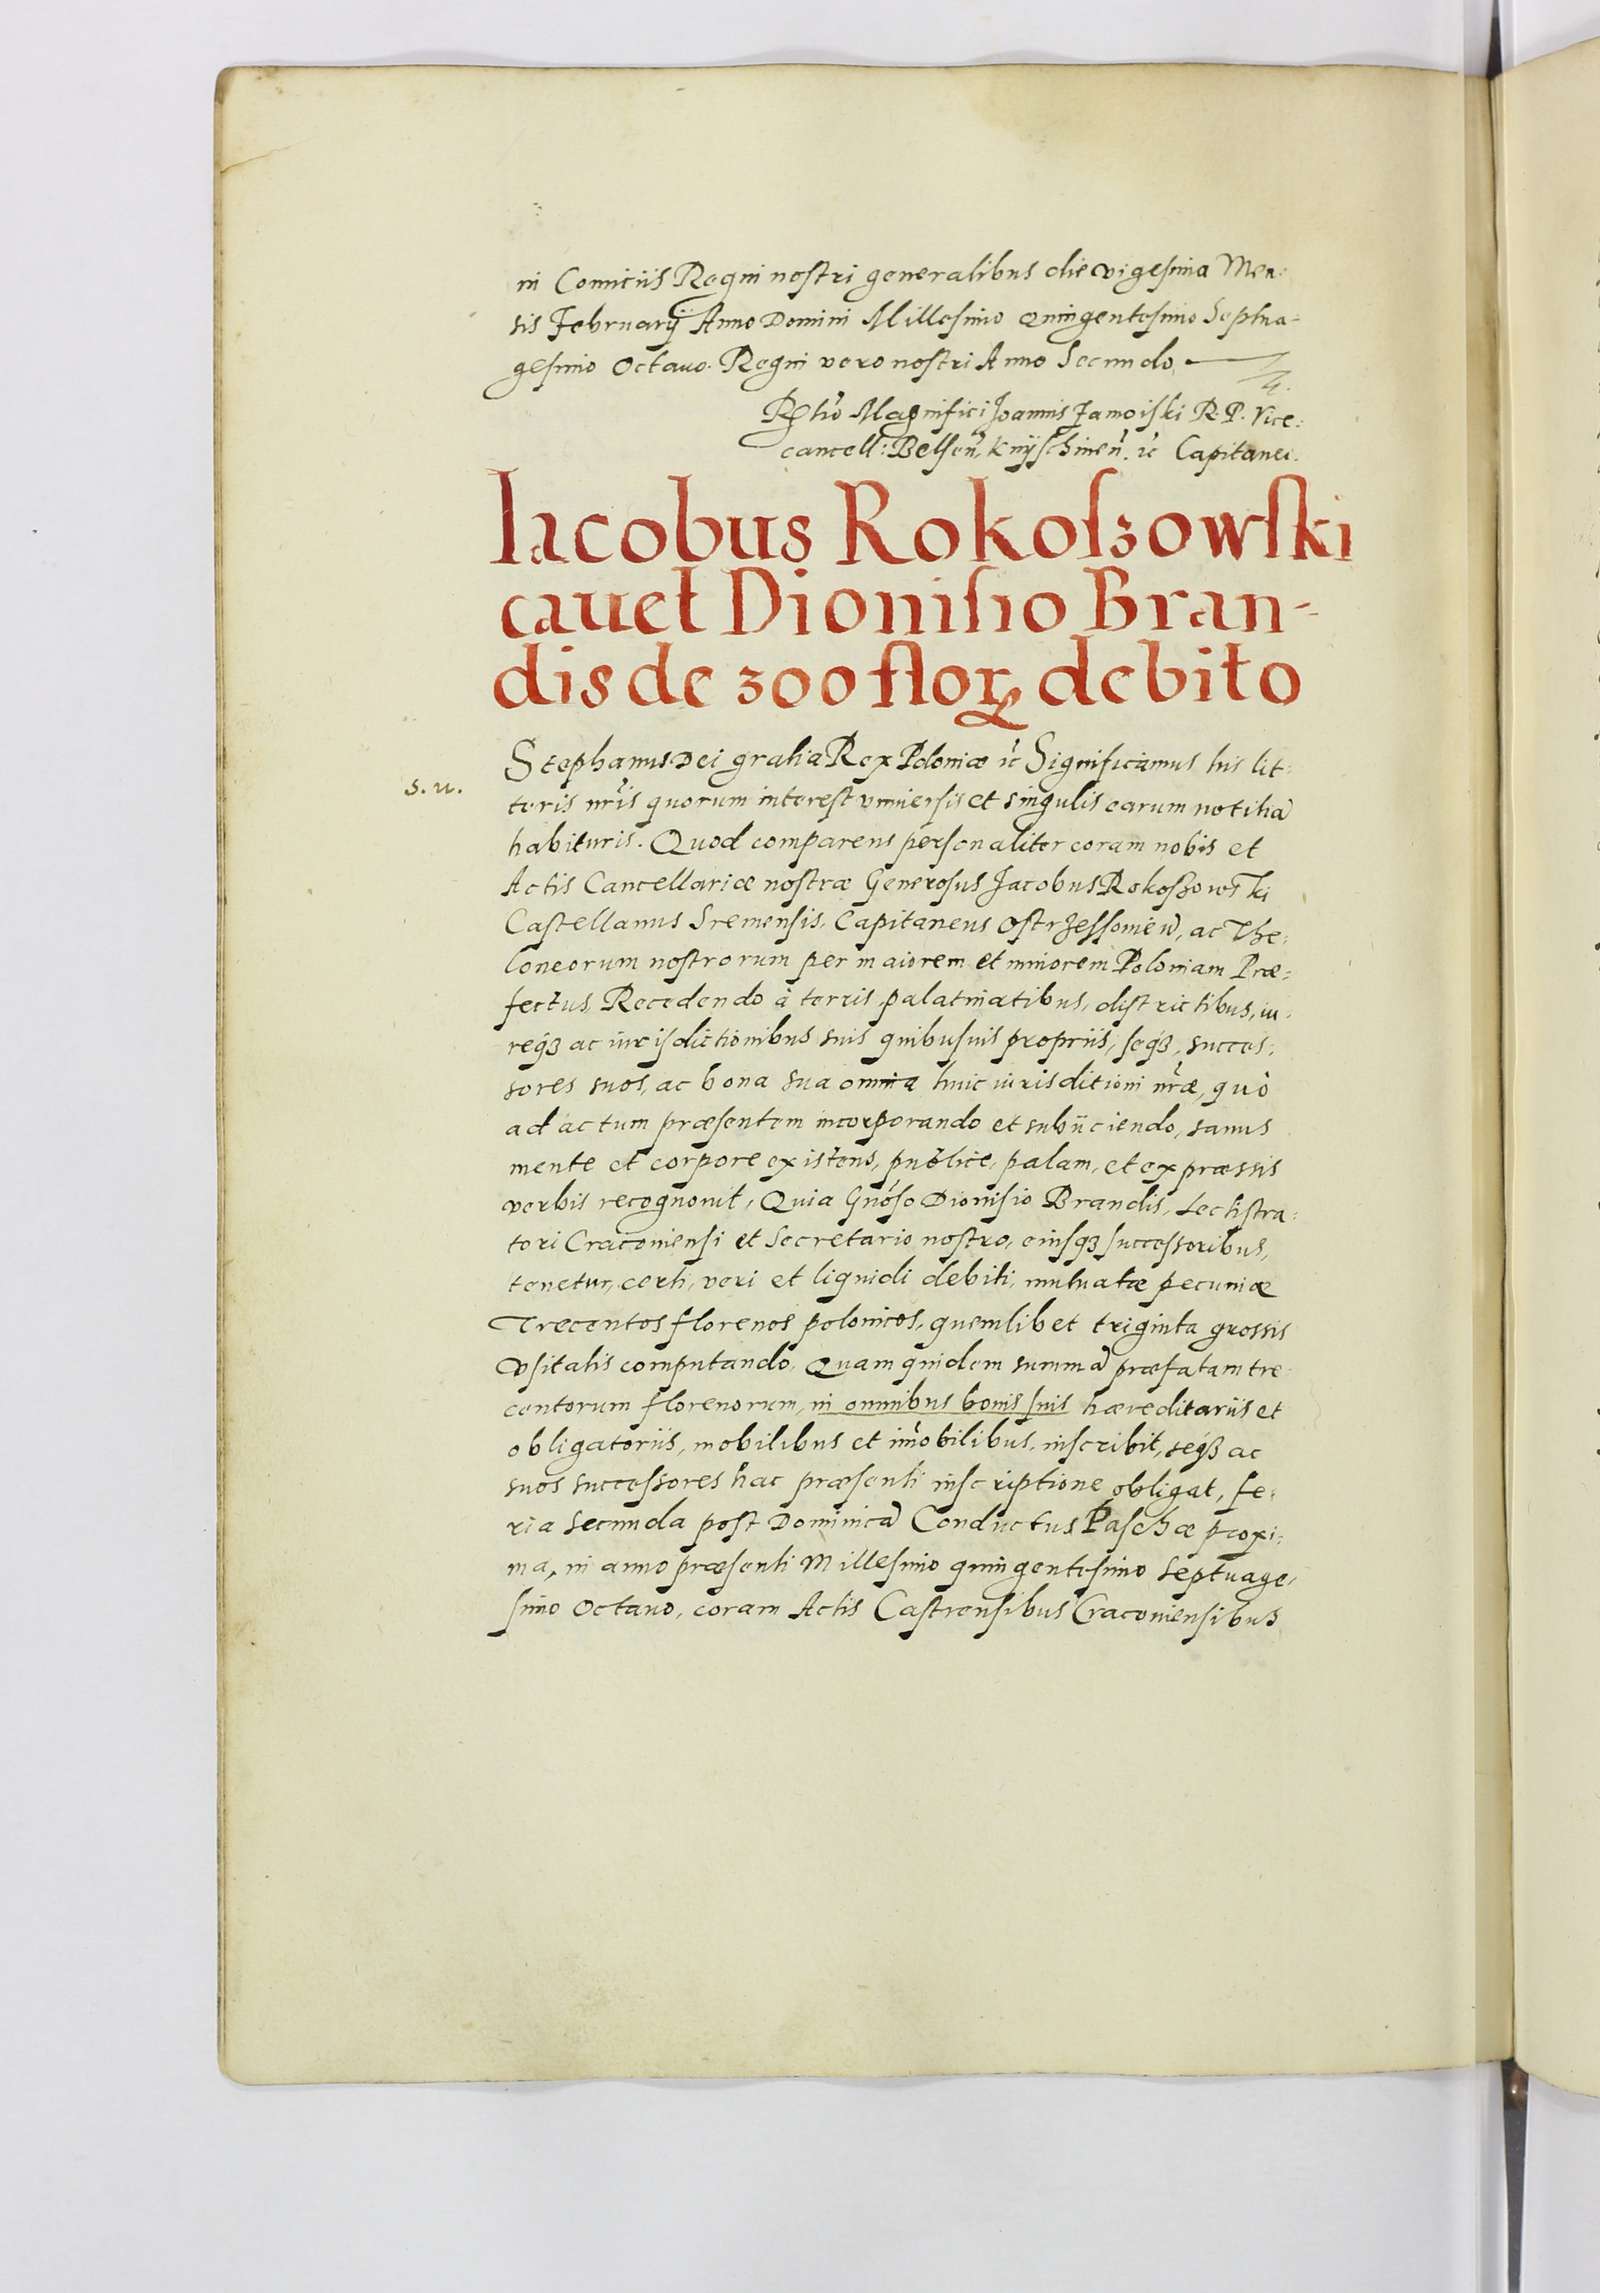 in Comitiis Regni nostri generalibus die vigesima Men-
sis Februarij Anno Domini Millesimo Quingentesimo Septua-
gesimo Octauo. Regni vero nostri Anno Secundo.
Rĕtiŏ Magnifici Joannis Zamoiski R. P. Vice-
cancell: Belsen̄, Knijschinen̄. ꝛc̄ Capitanei.
Iacobus Rokoſzowſki
cauet Dioniſio Bran-
dis de 300 floꝝ debito
s. u.
Stephanus Dei gratia Rex Poloniæ ꝛc̄ Significamus his lit-
teris nr̄is quorum interest vniuersis et singulis earum notitiā
habituris. Quod comparens personaliter coram nobis et
Actis Cancellariæ nostræ Generosus Jacobus Rokoszowski
Castellanus Sremensis, Capitaneus Ostrzessouien̄, ac The-
loneorum nostrorum per maiorem et minorem Poloniam Præ-
fectus, Recedendo à terris, palatinatibus, districtibus, iu-
reqȝ ac iurisdictionibus suis quibusuis propriis, seqȝ, succes-
sores suos, ac bona sua omnia huic iurisditioni nr̄æ, quò
ad actum præsentem incorporando et subiiciendo, sanus
mente et corpore existens, publice, palam, et expræssis
verbis recognouit, Quia Gnōso Dionisio Brandis, Lectistra-
tori Cracouiensi et Secretario nostro, eiusqȝ successoribus,
tenetur, certi, veri et liquidi debiti, mutuatæ pecuniæ
Trecentos florenos polonicos, quemlibet triginta grossis
vsitatis computando. Quam quidem summā præfatam tre-
centorum florenorum, in omnibus bonis suis hæreditariis et
obligatoriis, mobilibus et im̄obilibus, inscribit, seqȝ ac
suos successores hac præsenti inscriptione obligat, fe-
ria secunda post Dominicā Conductus Paschæ proxi-
ma, in anno præsenti Millesimo quingentesimo septuage-
simo Octauo, coram Actis Castrensibus Cracouiensibus